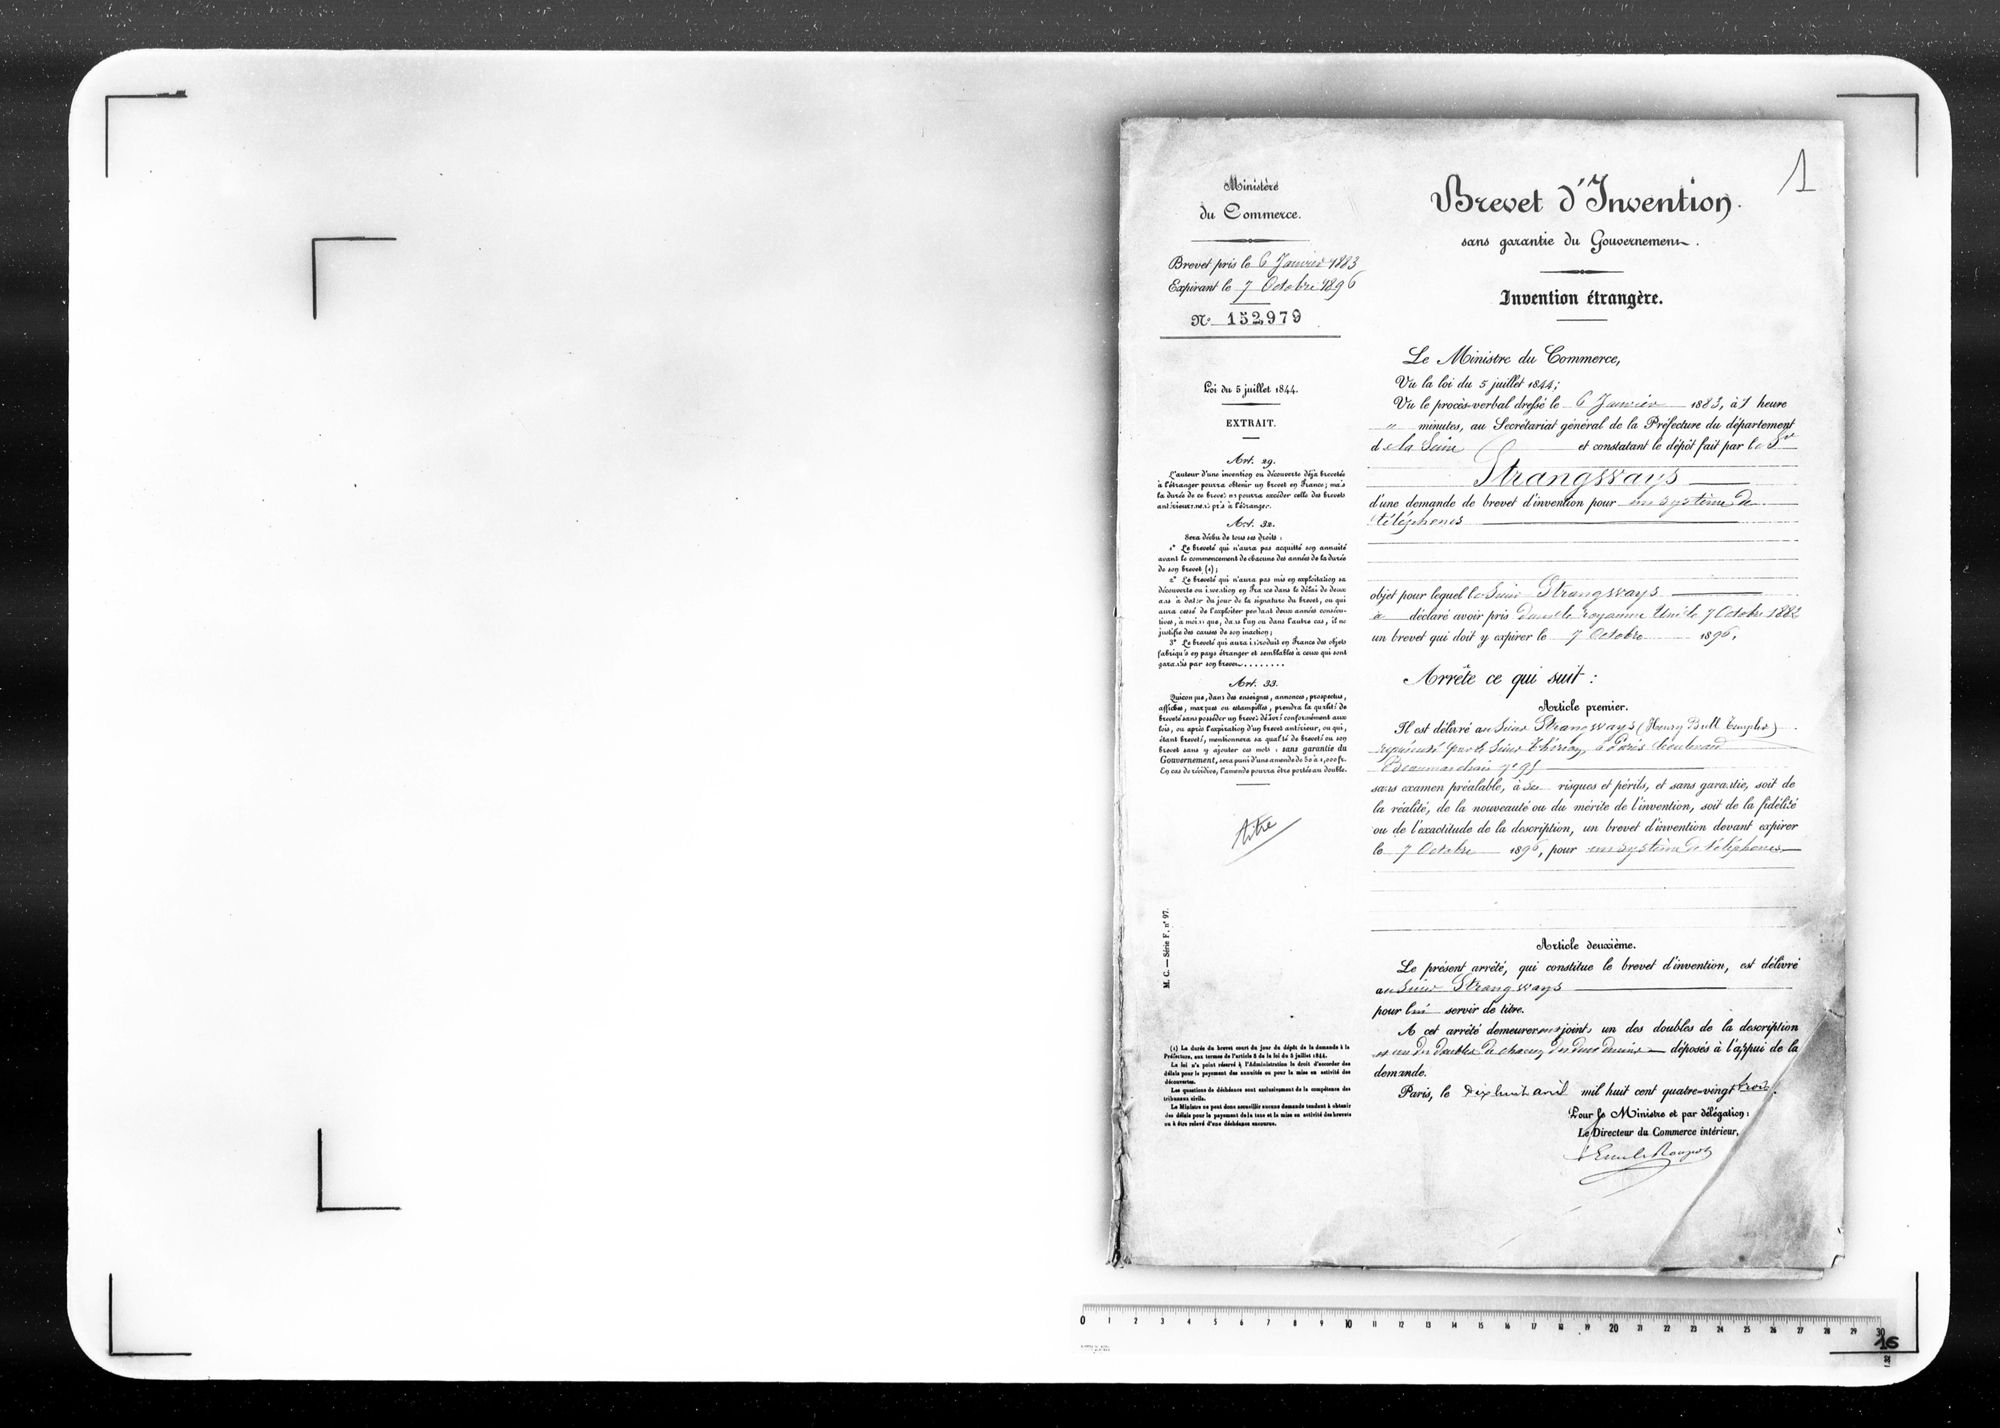 1
Ministère
du Commerce.
Brevet pris le 6 Janvier 1883
Expirant le 7 Octobre 1896
No 152,979
Loi du 5 juillet 1844.
EXTRAIT.
Art. 29.
L'auteur d'une invention ou découverte déjà brevetée
à l'étranger pourra obtenir un brevet en France; mais
la durée de ce brevet ne pourra excéder celle des brevets
antérieurement pris à l'étranger.
Art. 32.
Sera déchu de tous ses droits :
1° Le breveté qui n'aura pas acquitté son annuité
avant le commencement de chacune des années de la durée
de son brevet (1);
2° Le breveté qui n'aura pas mis en exploitation sa
découverte ou invention en France dans le délai de deux
ans à dater du jour de la signature du brevet, ou qui
aura cessé de l'exploiter pendant deux années consécu-
tives, à moins que, dans l'un ou dans l'autre cas, il ne
justifie des causes de son inaction;
3° Le breveté qui aura introduit en France des objets
fabriqués en pays étranger et semblables à ceux qui sont
garantis par son brevet........
Art. 33.
Quiconque, dans des enseignes, annonces, prospectus,
affiches, marques ou estampilles, prendra la qualité de
breveté sans posséder un brevet délivré conformément aux
lois, ou après l'expiration d'un brevet antérieur, ou qui,
étant breveté, mentionnera sa qualité de breveté ou son
brevet sans y ajouter ces mots : sans garantie du
Gouvernement, sera puni d'une amende de 50 à 1,000 fr.
En cas de récidive, l'amende pourra être portée au double.
titre
M. C. — Série F. n° 97.
(1) La durée du brevet court du jour du dépôt de la demande à la
Préfecture, aux termes de l'article 8 de la loi du 5 juillet 1844.
La loi n'a point réservé à l'Administration le droit d'accorder des
délais pour le payement des annuités ou pour la mise en activité des
découvertes.
Les questions de déchéance sont exclusivement de la compétence des
tribunaux civils.
Le Ministre ne peut donc accueillir aucune demande tendant à obtenir
des délais pour le payement de la taxe et la mise en activité des brevets
ou à être relevé d'une déchéance encourue.
Brevet d'Invention
sans garantie du Gouvernement.
Invention étrangère.
Le Ministre du Commerce,
Vu la loi du 5 juillet 1844;
Vu le procès-verbal dressé le 6 Janvier 1883, à 1 heure
" minutes, au Secrétariat général de la Préfecture du département
de la Seine et constatant le dépôt fait par le Sr
Strangways
d'une demande de brevet d'invention pour un système de
téléphones
objet pour lequel le Sieur Strangways
a déclaré avoir pris dans le royaume Uni le 7 Octobre 1882
un brevet qui doit y expirer le 7 Octobre 1896.
Arrête ce qui suit :
Article premier.
Il est délivré au Sieur Strangways (Henry Bull Templer)
représenté par le Sieur Thirion, à Paris boulevard
Beaumarchais no 95
sans examen préalable, à ses risques et périls, et sans garantie, soit de
la réalité, de la nouveauté ou du mérite de l'invention, soit de la fidélité
ou de l'exactitude de la description, un brevet d'invention devant expirer
le 7 Octobre 1896, pour un système de téléphones
Article deuxième.
Le présent arrêté, qui constitue le brevet d'invention, est délivré
au Sieur Strangways
pour lui servir de titre.
A cet arrêté demeureront joints un des doubles de la description
et un des doubles de chacun des deux dessins déposés à l'appui de la
demande.
Paris, le dix huit avril mil huit cent quatre-vingt trois.
Pour le Ministre et par délégation :
Le Directeur du Commerce intérieur,
0 1 2 3 4 5 6 7 8 9 10 11 12 13 14 15 16 17 18 19 20 21 22 23 24 25 26 27 28 29 30
16